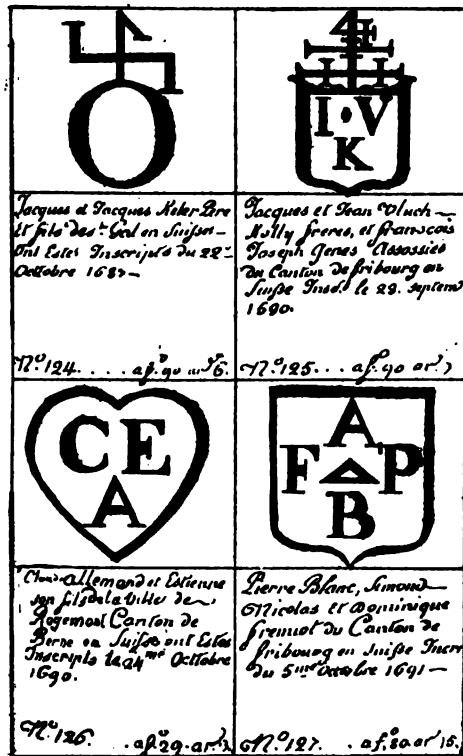 O
I·V
K
Jacques et Jacques Keler Pere
et fils de St Gal en Suisse
ont Estes Inscripts du 22e
Octobre 1687
No 124 . . . . a fo 90 ar 6.
Jacques et Jean Vluch
Kolly freres, et franscois
Joseph Genes Assossies
du Canton de fribourg en
Suisse Insc. le 29. septem
1690.
No 125 . . . a fo 90 aro 7
C E
A
A
F P
B
Claude allemand et Estienne
son fils de la Ville de
Rogemont Canton de
Berne en Suisse ont Estes
Inscripts le 24me Octtobre
1690.
No 126. . a fo 29. ar.o 2
Pierre Blanc, Simond
Nicolas et Dominique
fremiot du Canton de
fribourg en Suisse Inscr
du 5me Octobre 1691
No 127. . a fo. 80. aro 15.